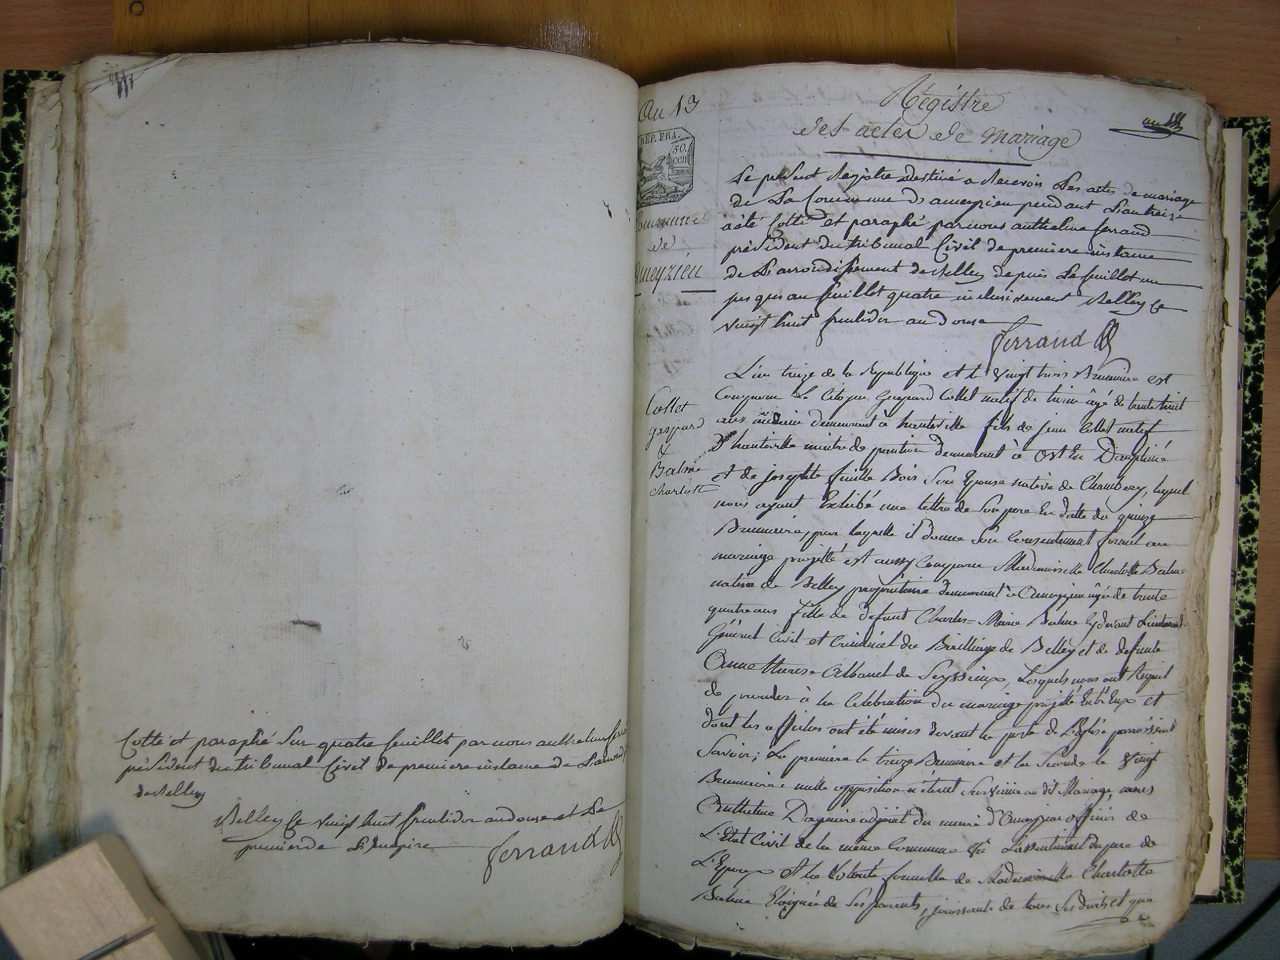 Cotté et paraphé sur quatre feuillets par nous anthelme
président du tribunal Civil de premiere instance de
de Belley
Belley ce vingt huit fructidor an douse et Le
premier de L'Empire
ferrand
An 13
REP. FRA.
50.
Commune
de
Ameyzieu
Régistre
des actes de Mariage
an 13
Le présent Registre destiné a Recevoir Les actes de mariage
de La Commune d'ameyzieu pendant L'an treize
a été Cotté et paraphé par nous anthelme ferrand
président du tribunal Civil de premiere instance
de L'arrondissement de Belley depuis Le feuillet un
jusques au feuillet quatre inclusivement Belley ce
vingt huit fructidor an douse
ferrand
Collet
gaspard
&
Balme
Charlotte
L'an treize de la Republique et le vingt trois Brumaire est
Comparu Le Citoyen Gaspard Collet natif de turin âgé de trente huit
ans demeurant à hauteville fils de jean Collet natif
D'hauteville maitre de demeurant à en Dauphiné
et de josephte Bois Son Epouse native de Chambery, lequel
nous ayant Exhibé une lettre de Son pere En datte du quinze
Brumaire, par laquelle il donne Son Consentement formel au
mariage projetté est aussy Comparue Mademoiselle Charlotte Balme
native de Belley propriétaire demeurant à Ameyzieu âgée de trente
quatre ans fille de defunt Charles-Marie Balme Cy devant Lieutenant
Général Civil et Criminel du Bailliage de Belley et de defunte
Anne therese Albanel de Seyssieux, Lesquels nous ont Requit
de proceder à la Celebration du mariage projetté Entr'Eux et
dont les affiches ont été mises devant la porte de L'Eglise
Savoir; La premiere le treize Brumaire et la Seconde le vingt
Brumaire nulle opposition n'étant Survenue au dit Mariage, nous
Anthelme Dagniere adjoint du maire d'Ameyzieu officier de
L'Etat Civil de la même Commune Vû L'assentiment du pere de
L'Epoux et la Volonté formelle de Mademoiselle Charlotte
Balme Eloignée de Ses parents, jouissante de tous Ses droits et que